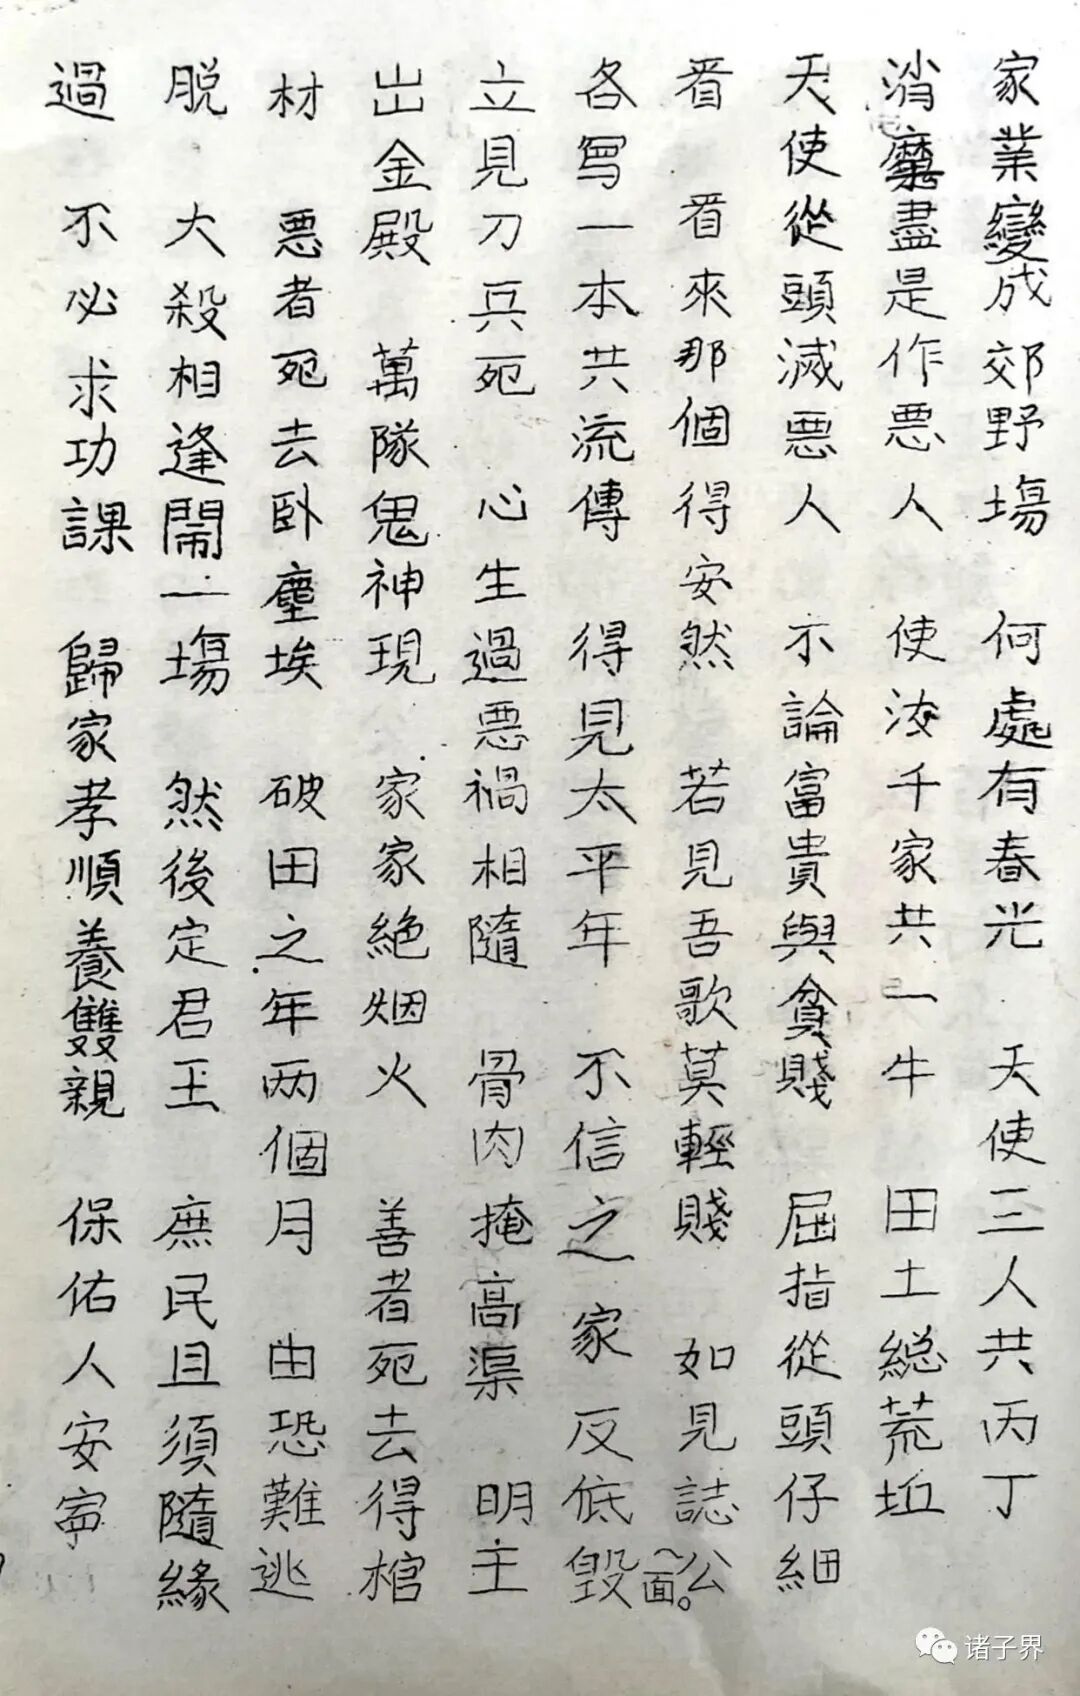 家業變成郊野塲　何處有春光　天使三人共丙丁
消磨盡是作悪人　使汝千家共一牛　田土総荒坵
天使從頭滅悪人　不論富貴與貧賤　屈指從頭仔細
看　看來那個得安然　若見吾歌莫輕賤　如見誌公面。
各写一本共流傳　得見太平年　不信之家反底毀
立見刀兵死　心生過悪禍相隨　骨肉掩高渠　明主
出金殿　萬隊鬼神現　家家絕烟火　善者死去得棺
材　悪者死去卧塵埃　破田之年两個月　由恐難逃
脱　大殺相逢鬧一塲　然後定君王　庶民且須隨緣
過　不必求功課　歸家孝順養雙親　保佑人安寧
诸子界